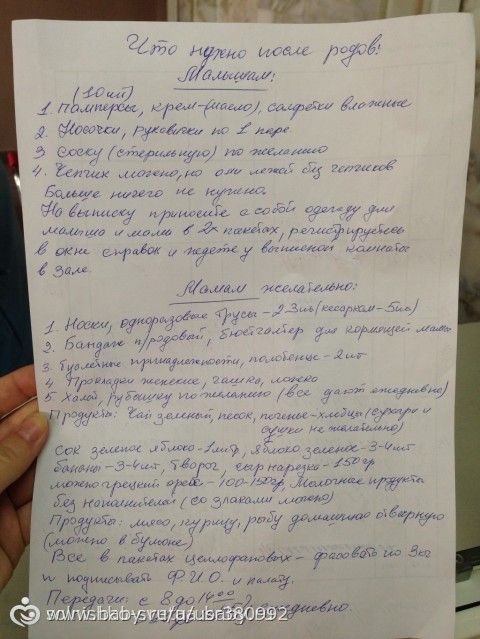 Что нужно после родов!
Малышам:
(10 шт)
1. Памперсы, крем-(масло), салфетки влажные
2. Носочки, рукавички по 1 паре.
3 Соску (стерильную) по желанию
4. Чепчик можно, но они лежат без чепчиков
Больше ничего не нужно.
На выписку приносите с собой одежду для
малыша и мамы в 2х пакетах, регистрируетесь
в окне справок и ждете у выписной комнаты
в зале.
Мамам желательно:
1. Носки, одноразовые трусы - 2-3 шт (кесарком - 5 шт)
2. Бандаж п/родовый, бюстгалтер для кормящей мамы
3. Туалетные принадлежности, полотенце - 2 шт
4. Прокладки женские, чашка, ложка
5 Халат, рубашку по желанию (все дают ежедневно)
Продукты: Чай зеленый, песок, печенье-хлебцы (сухари и
сушки не желательно)
Сок зеленое яблоко - 1 литр, яблоко зеленое - 3-4 шт
бананы - 3-4 шт, творог, сыр нарезка - 150 гр
можно грецкий орех - 100-150 гр, Молочные продукты
без наполнителей (со злаками можно)
Продукты: мясо, курицу, рыбу домашнюю отварную
(можно в бульоне)
Все в пакетах целлофановых - фасовать по 3 кг
и подписывать Ф.И.О. и палату.
Передачи: с 8 до 14 00
ежедневно.
www.baby.ru/u/usa380992